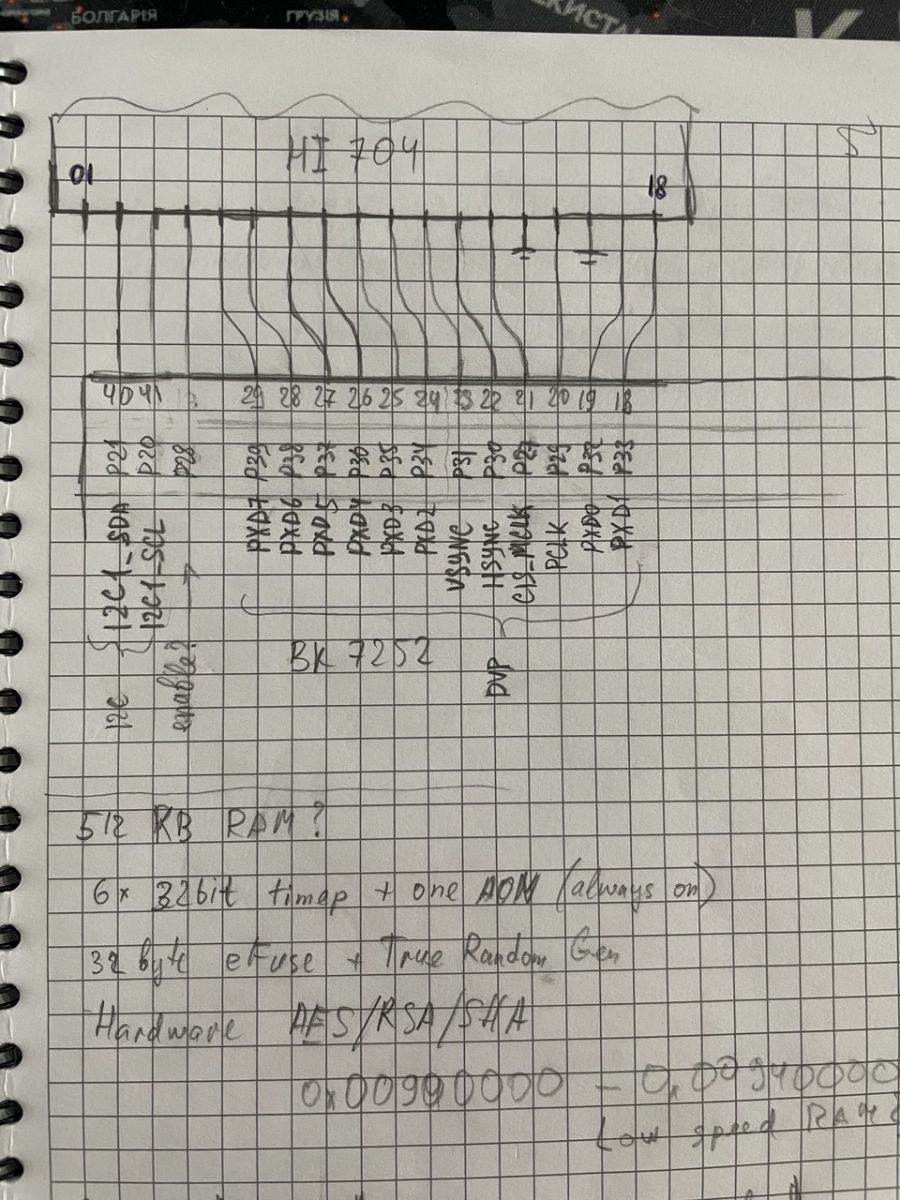 БОЛГАРІЯ
ГРУЗІЯ
HI 704
01
18
40 41 29 28 27 26 25 24 23 22 21 20 19 18
P21 P20 P28 P39 P38 P37 P36 P35 P34 P31 P30 P27 P29 P32 P33
I2C1_SDA I2C1_SCL PXD7 PXD6 PXD5 PXD4 PXD3 PXD2 VSYNC HSYNC CIS_MCLK PCLK PXD0 PXD1
I2C
enable?
BK 7252
DVP
512 KB RAM?
6x 32bit timap + one AON (always on)
32 byte eFuse + True Random Gen
Hardware AES/RSA/SHA
0x00900000 - 0x00940000
Low speed RAM